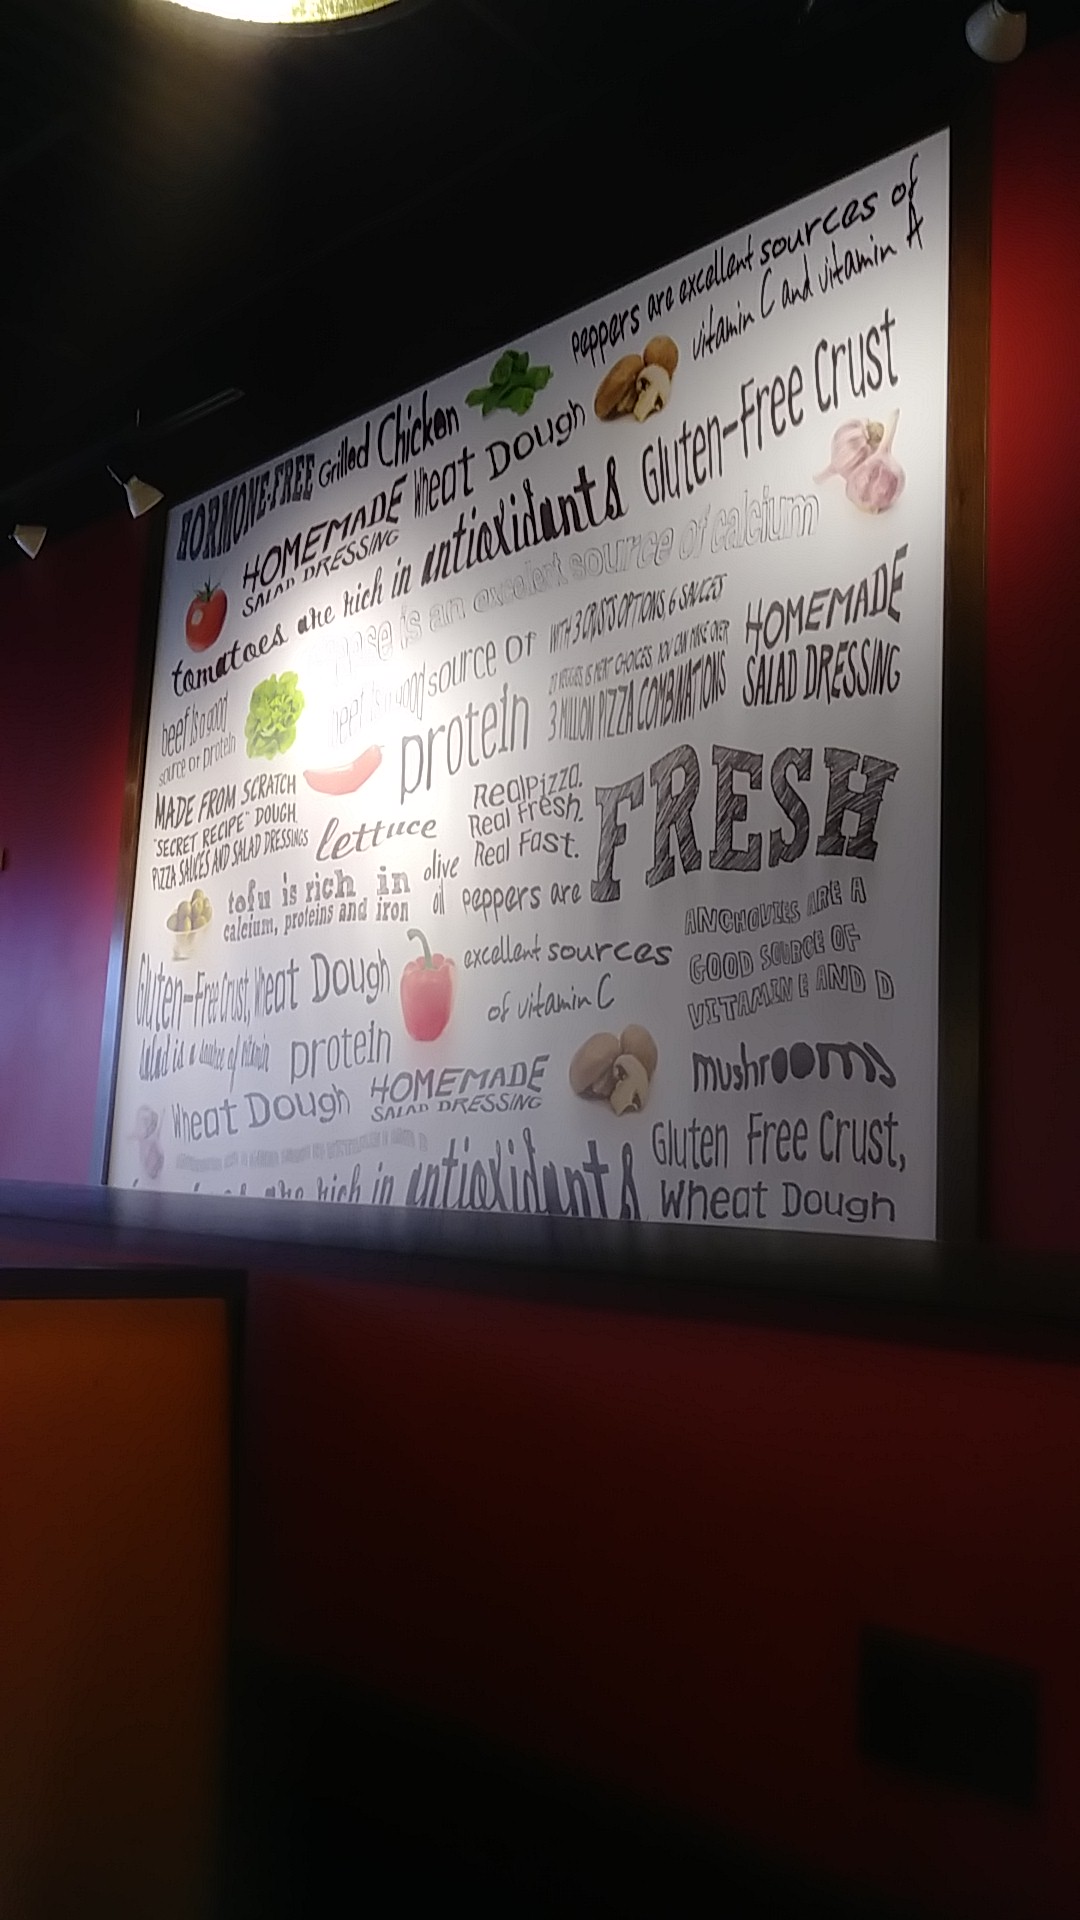 peppers are excellent sources of
vitamin C and vitamin A
HORMONE-FREE Grilled Chicken
HOMEMADE
SALAD DRESSING
Wheat Dough
Gluten-Free Crust
tomatoes are rich in antioxidants
is an excelent source of calcium
beef is a good
source or protein
beef is a good source or
protein
WITH 3 CRUSTS OPTIONS, 6 SAUCES
CHOICES, YOU CAN MAKE OVER
3 MILLION PIZZA COMBINATIONS
HOMEMADE
SALAD DRESSING
MADE FROM SCRATCH
"SECRET RECIPE" DOUGH,
PIZZA SAUCES AND SALAD DRESSINGS
lettuce
RealPizza.
Real Fresh.
Real Fast.
FRESH
tofu is rich in
calcium, proteins and iron
olive
oil
peppers are
excellent sources
of vitamin C
ANCHOVIES ARE A
GOOD SOURCE OF
VITAMIN E AND D
Gluten-Free Crust, Wheat Dough
Salad is a source of vitamin
protein
mushrooms
Wheat Dough
HOMEMADE
SALAD DRESSING
are rich in antioxidants
Gluten Free Crust,
Wheat Dough